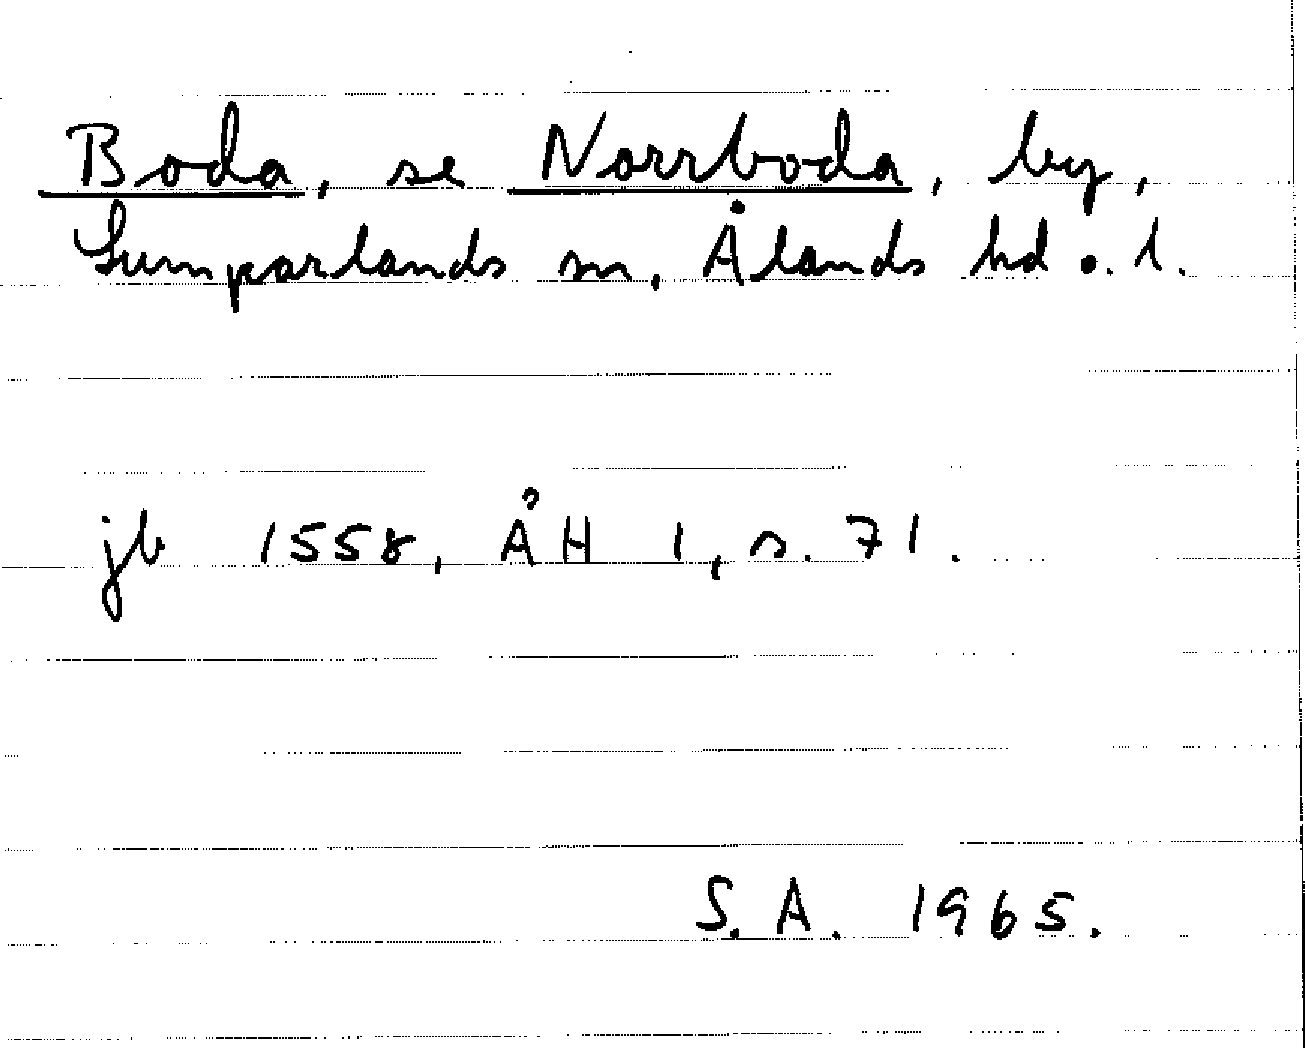 Boda, se Norrboda, by,
Lumparlands sn, Ålands hd o. l.
jb 1558, ÅH 1, s. 71.
S. A. 1965.